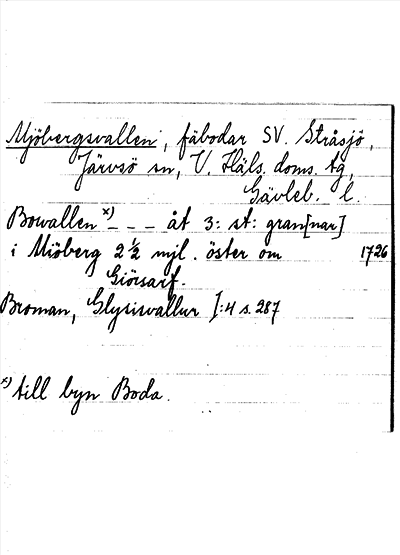 Mjöbergsvallen, fäbodar SV. Stråsjö,
Järvsö sn, V. Häls. doms. tg,
Gävleb. l.
Bowallen x) _ _ _ åt 3: st: gran[nar]
i Miöberg 2 1/2 mjl. öster om 1726
Giörsarf.
Broman, Glysisvallur I:4 s. 287
x) till byn Boda.